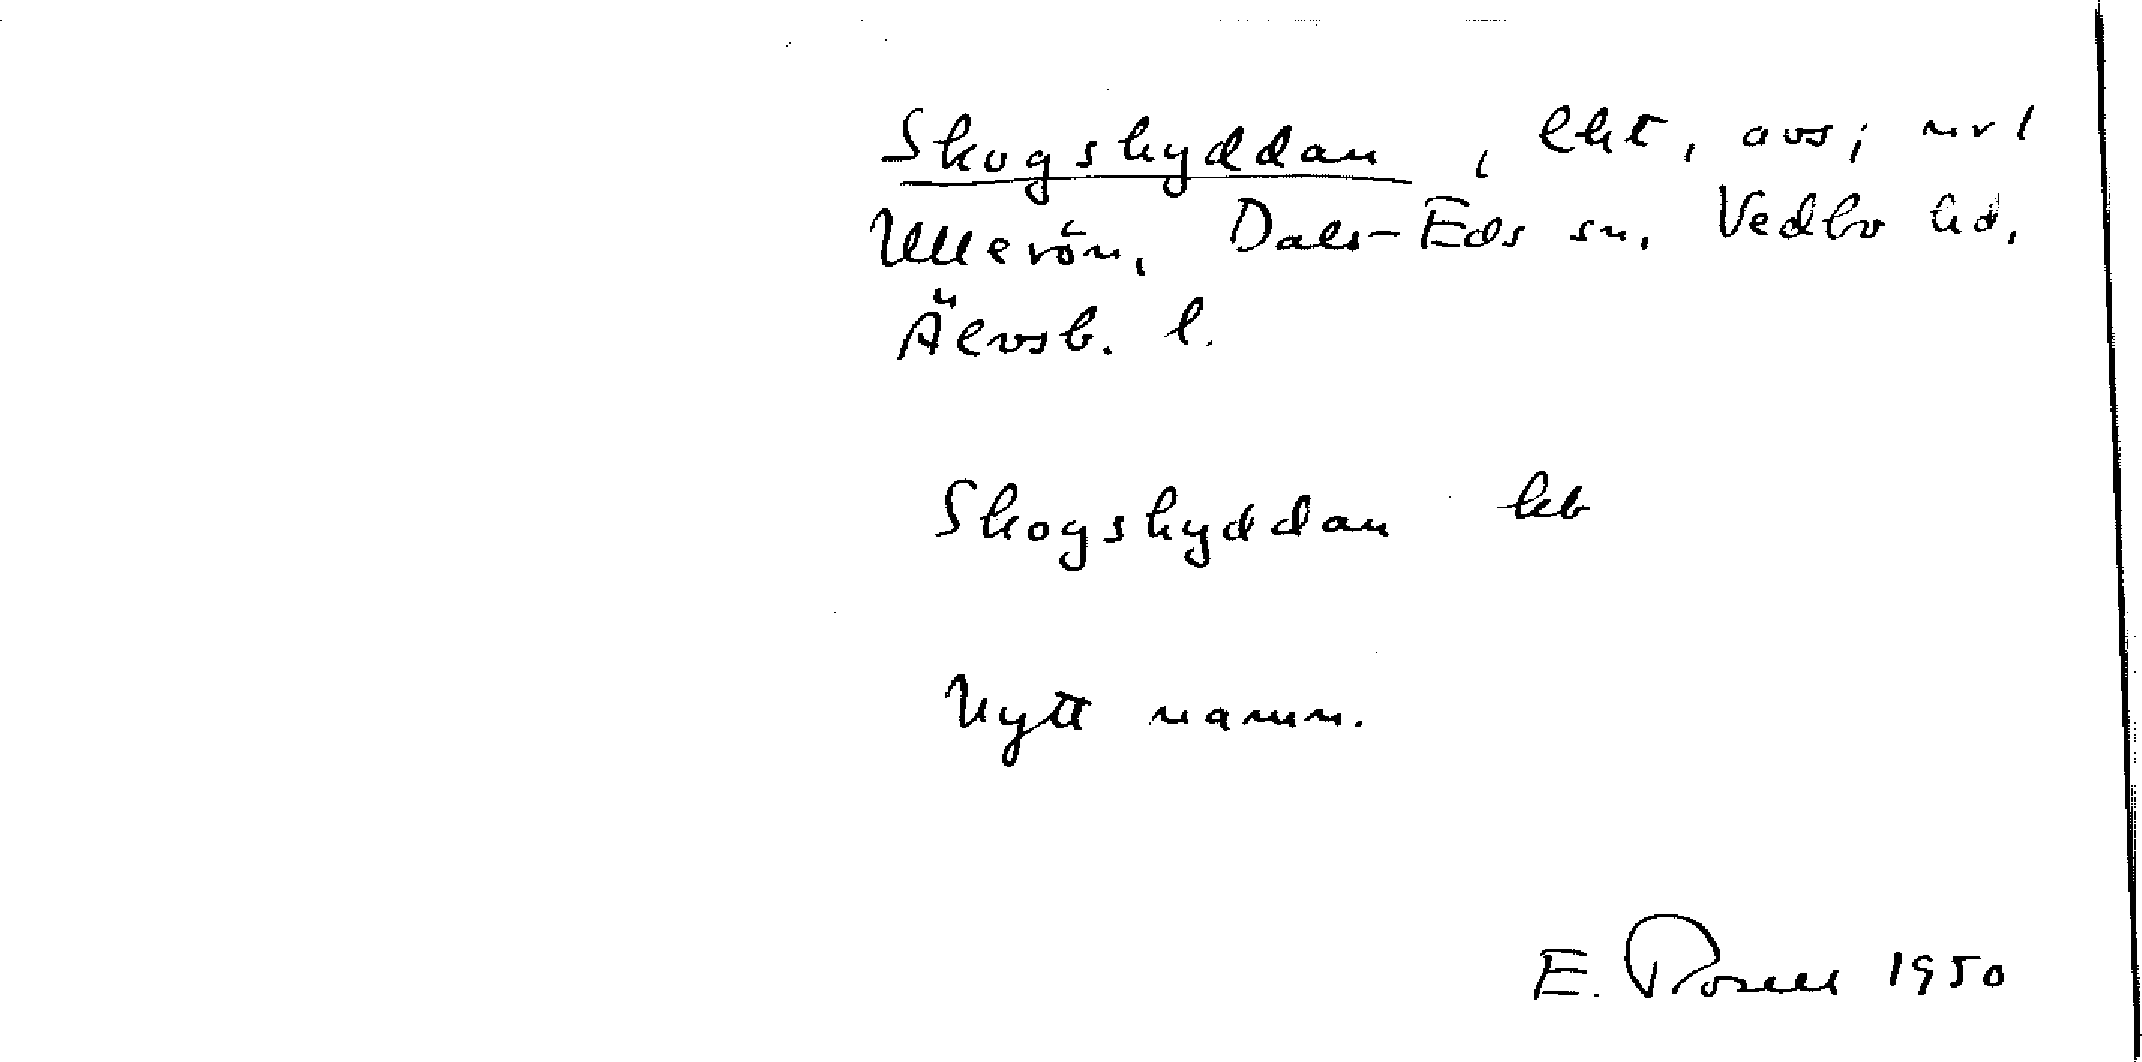 Skogshyddan, lht, avs; nr 1
Ullerön, Dals-Eds sn, Vedbo hd,
Älvsb. l.
Skogshyddan kb
Nytt namn.
E. 1950